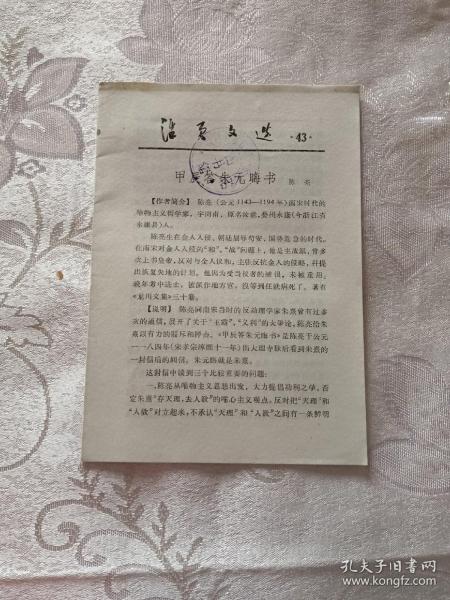 活页文选 ·43·
甲辰答朱元晦书 陈亮
【作者简介】 陈亮(公元1143—1194年)南宋时代的
唯物主义哲学家,字同甫,原名汝能,婺州永康(今浙江省
永康县)人。
陈亮生在金人入侵、朝廷屈辱苟安、国势危急的时代,
在南宋对金人入侵的“和”、“战”问题上,他是主战派,曾多
次上书皇帝,反对与金人议和,主张反抗金人的侵略,并提
出恢复失地的计划。他因为受当权者的嫉恨,未被重用;
晚年考中进士,被派作地方官,没等到任就病死了。著有
《龙川文集》三十卷。
【说明】 陈亮同南宋当时的反动理学家朱熹曾有过多
次的通信,展开了关于“王霸”、“义利”的大争论,陈亮给朱
熹以有力的驳斥和抨击。《甲辰答朱元晦书》是陈亮于公元
一一八四年(宋孝宗淳熙十一年)出大理寺狱后看到朱熹的
一封信后的回信。朱元晦就是朱熹。
这封信中谈到三个比较重要的问题:
一、陈亮从唯物主义思想出发,大力提倡功利之学,否
定朱熹“存天理,去人欲”的唯心主义观点。反对把“天理”和
“人欲”对立起来,不承认“天理”和“人欲”之间有一条鲜明
孔夫子旧书网
www.kongfz.com